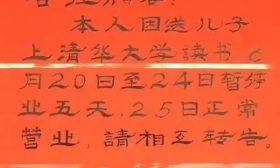 本人因送儿子
上清华大学读书 6
月20日至24日暂停
业五天, 25日正常
营业, 請相互转告